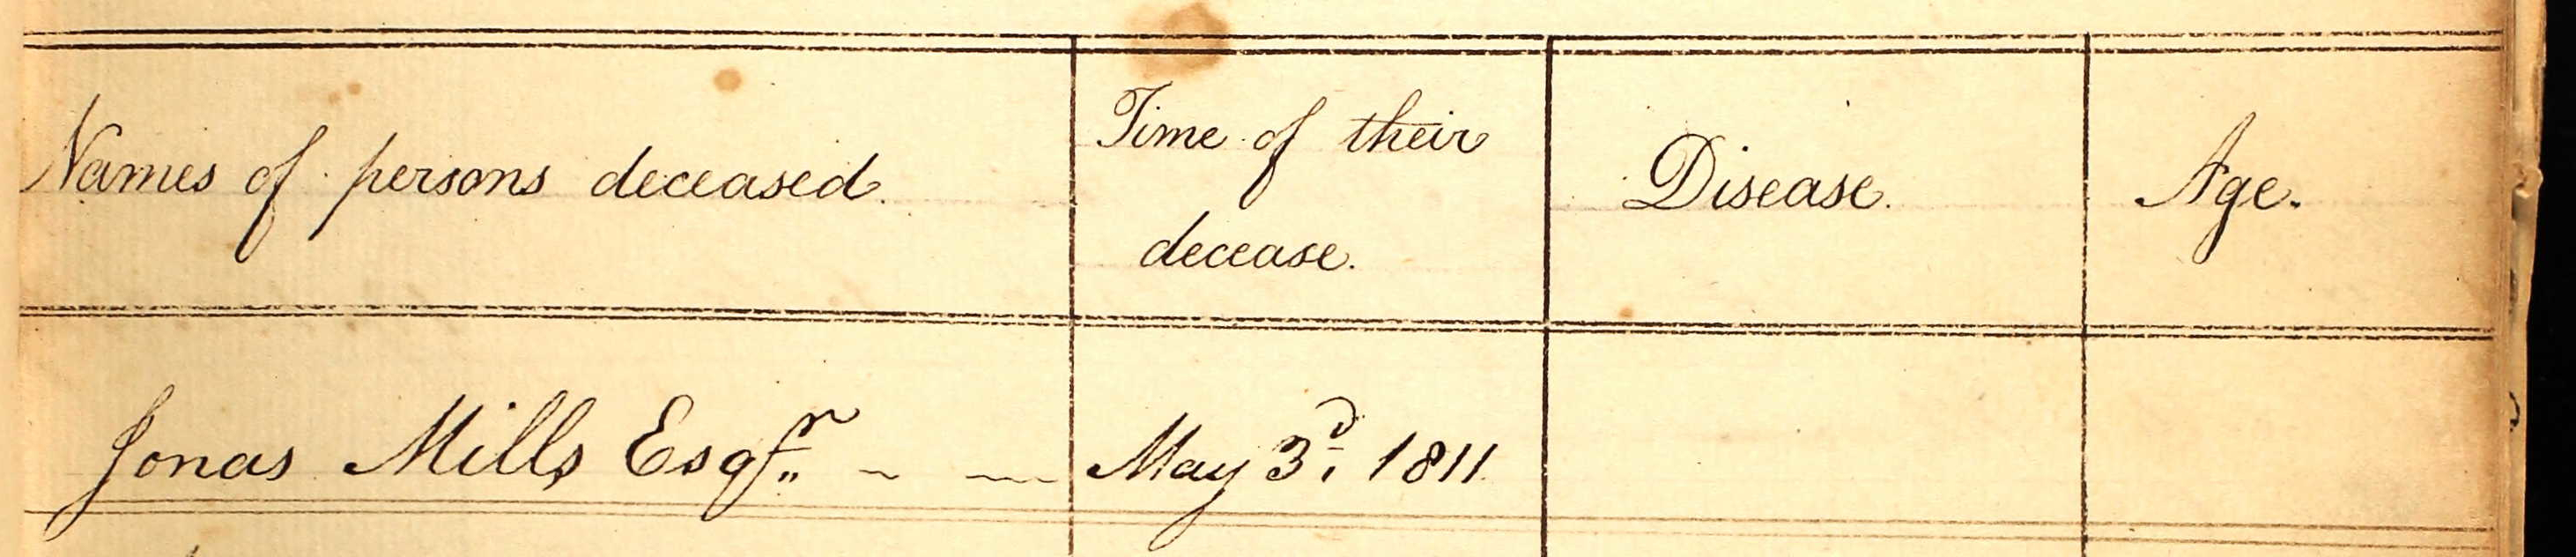 Names of persons deceased.
Time of their
decease.
Disease.
Age.
Jonas Mills Esqr. - - May 3d. 1811